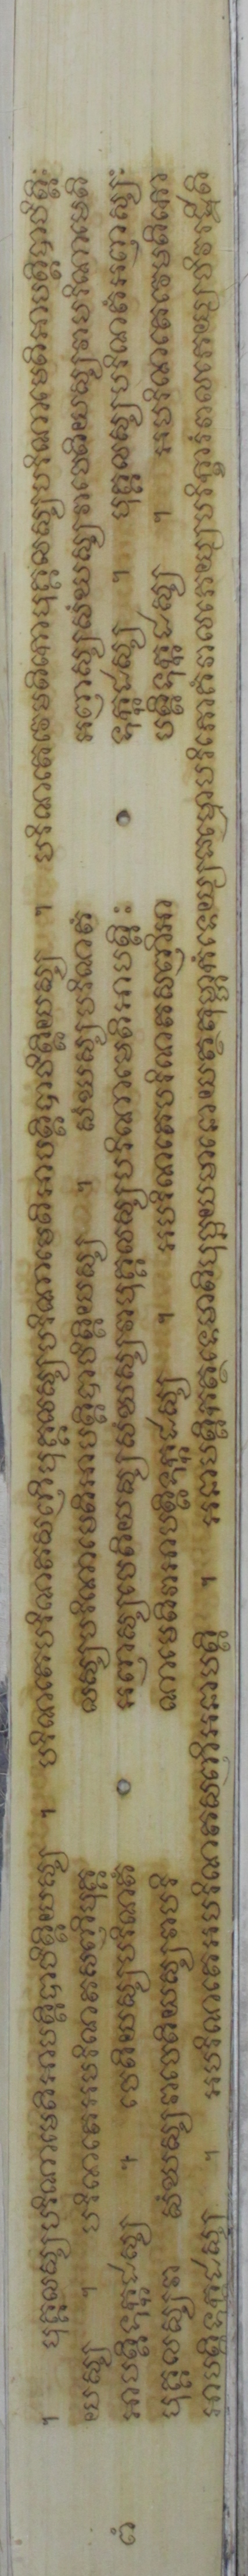 ។ បុគ្គលស្សបរិណាមេតិអាបត្តិបាចិត្តិយស្ស ។ បរិណតេបរិណតសញ៏បុគ្គលស្សបរិណាមេតិអាបត្តិបាចិត្តិយស្ស ។ បរិណតេវេមតិកោបុគ្គលស្សបរិណាមេតិអាបត្តិបាចិត្តិ៖
យស្ស ។ បរិណតេអបរិណតសញ៏បុគ្គ លស្សបរិណាមេតិអាបត្តិបាចិត្តិយស្ស ។ សំឃស្សបរិណតំ អញាស្សសំឃស្សវាចេតិយស្សវាបរិណាមេតិ
ពំ អាបត្តិទុក្កដស្ស ។ ចេតិយស្សបរិណតំ អញាស្សចេតិយស្សសំឃស្សវាបុគ្គលស្សបរិណាមេតិអាបត្តិ៖ ទុក្កដស្ស ។ បុគ្គលស្សបរិណតំអញាស្ស៖
បុគ្គលស្សវា សំឃស្សវាចេតិយស្សវាបរិ ណាមេតិវាអាបត្តិទុក្កដស្ស ។ អបរិណតេបរិណតសញ៏អា បត្តិទុក្កដស្ស ។ អបរិណតេវេមតិកោ
អាបត្តិទុក្កដស្ស ។ អបរិណតេអបរិណតសញ៏អនាបត្តិ ។ អនាបត្តិកត្ថទេមាតិបុច្ឆយមានោយត្ថតុម្ហាកំទេយ្យធម្មោបរិភោគំវាលភេយ្យបរិក្ខារំវាលភេយ្យចិរដ្ឋីតិ